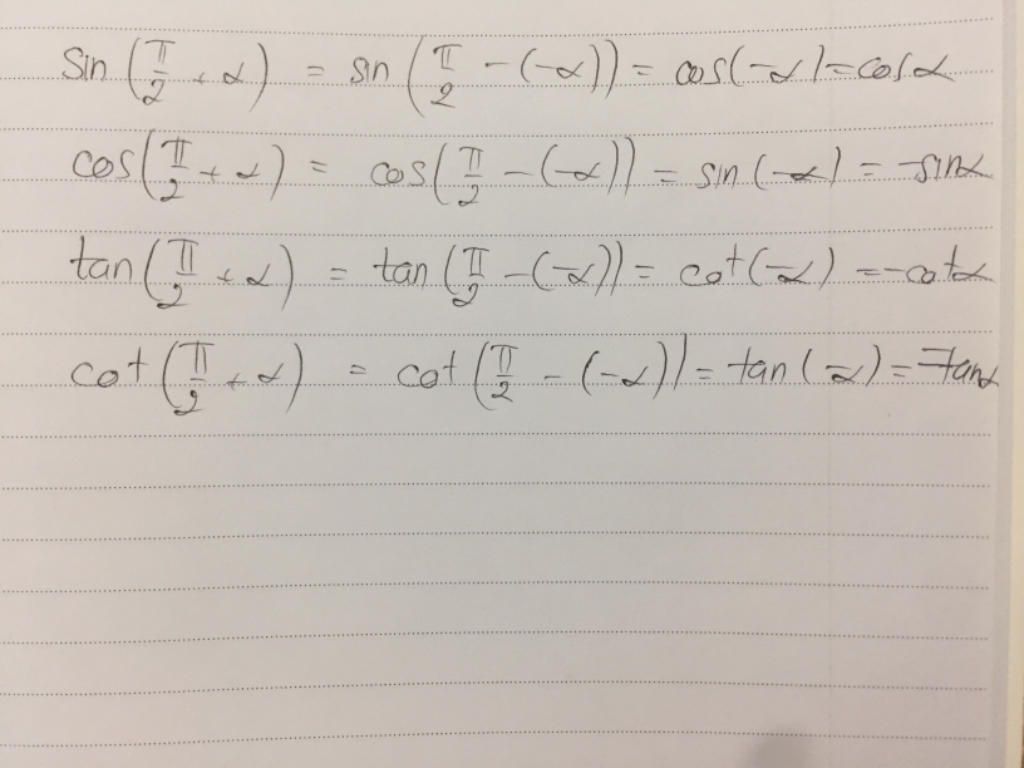 sin (π/2 + α) = sin (π/2 - (-α)) = cos(-α) = cosα
cos(π/2 + α) = cos(π/2 - (-α)) = sin (-α) = -sinα
tan (π/2 + α) = tan (π/2 - (-α)) = cot(-α) = -cotα
cot (π/2 + α) = cot (π/2 - (-α)) = tan (-α) = -tanα